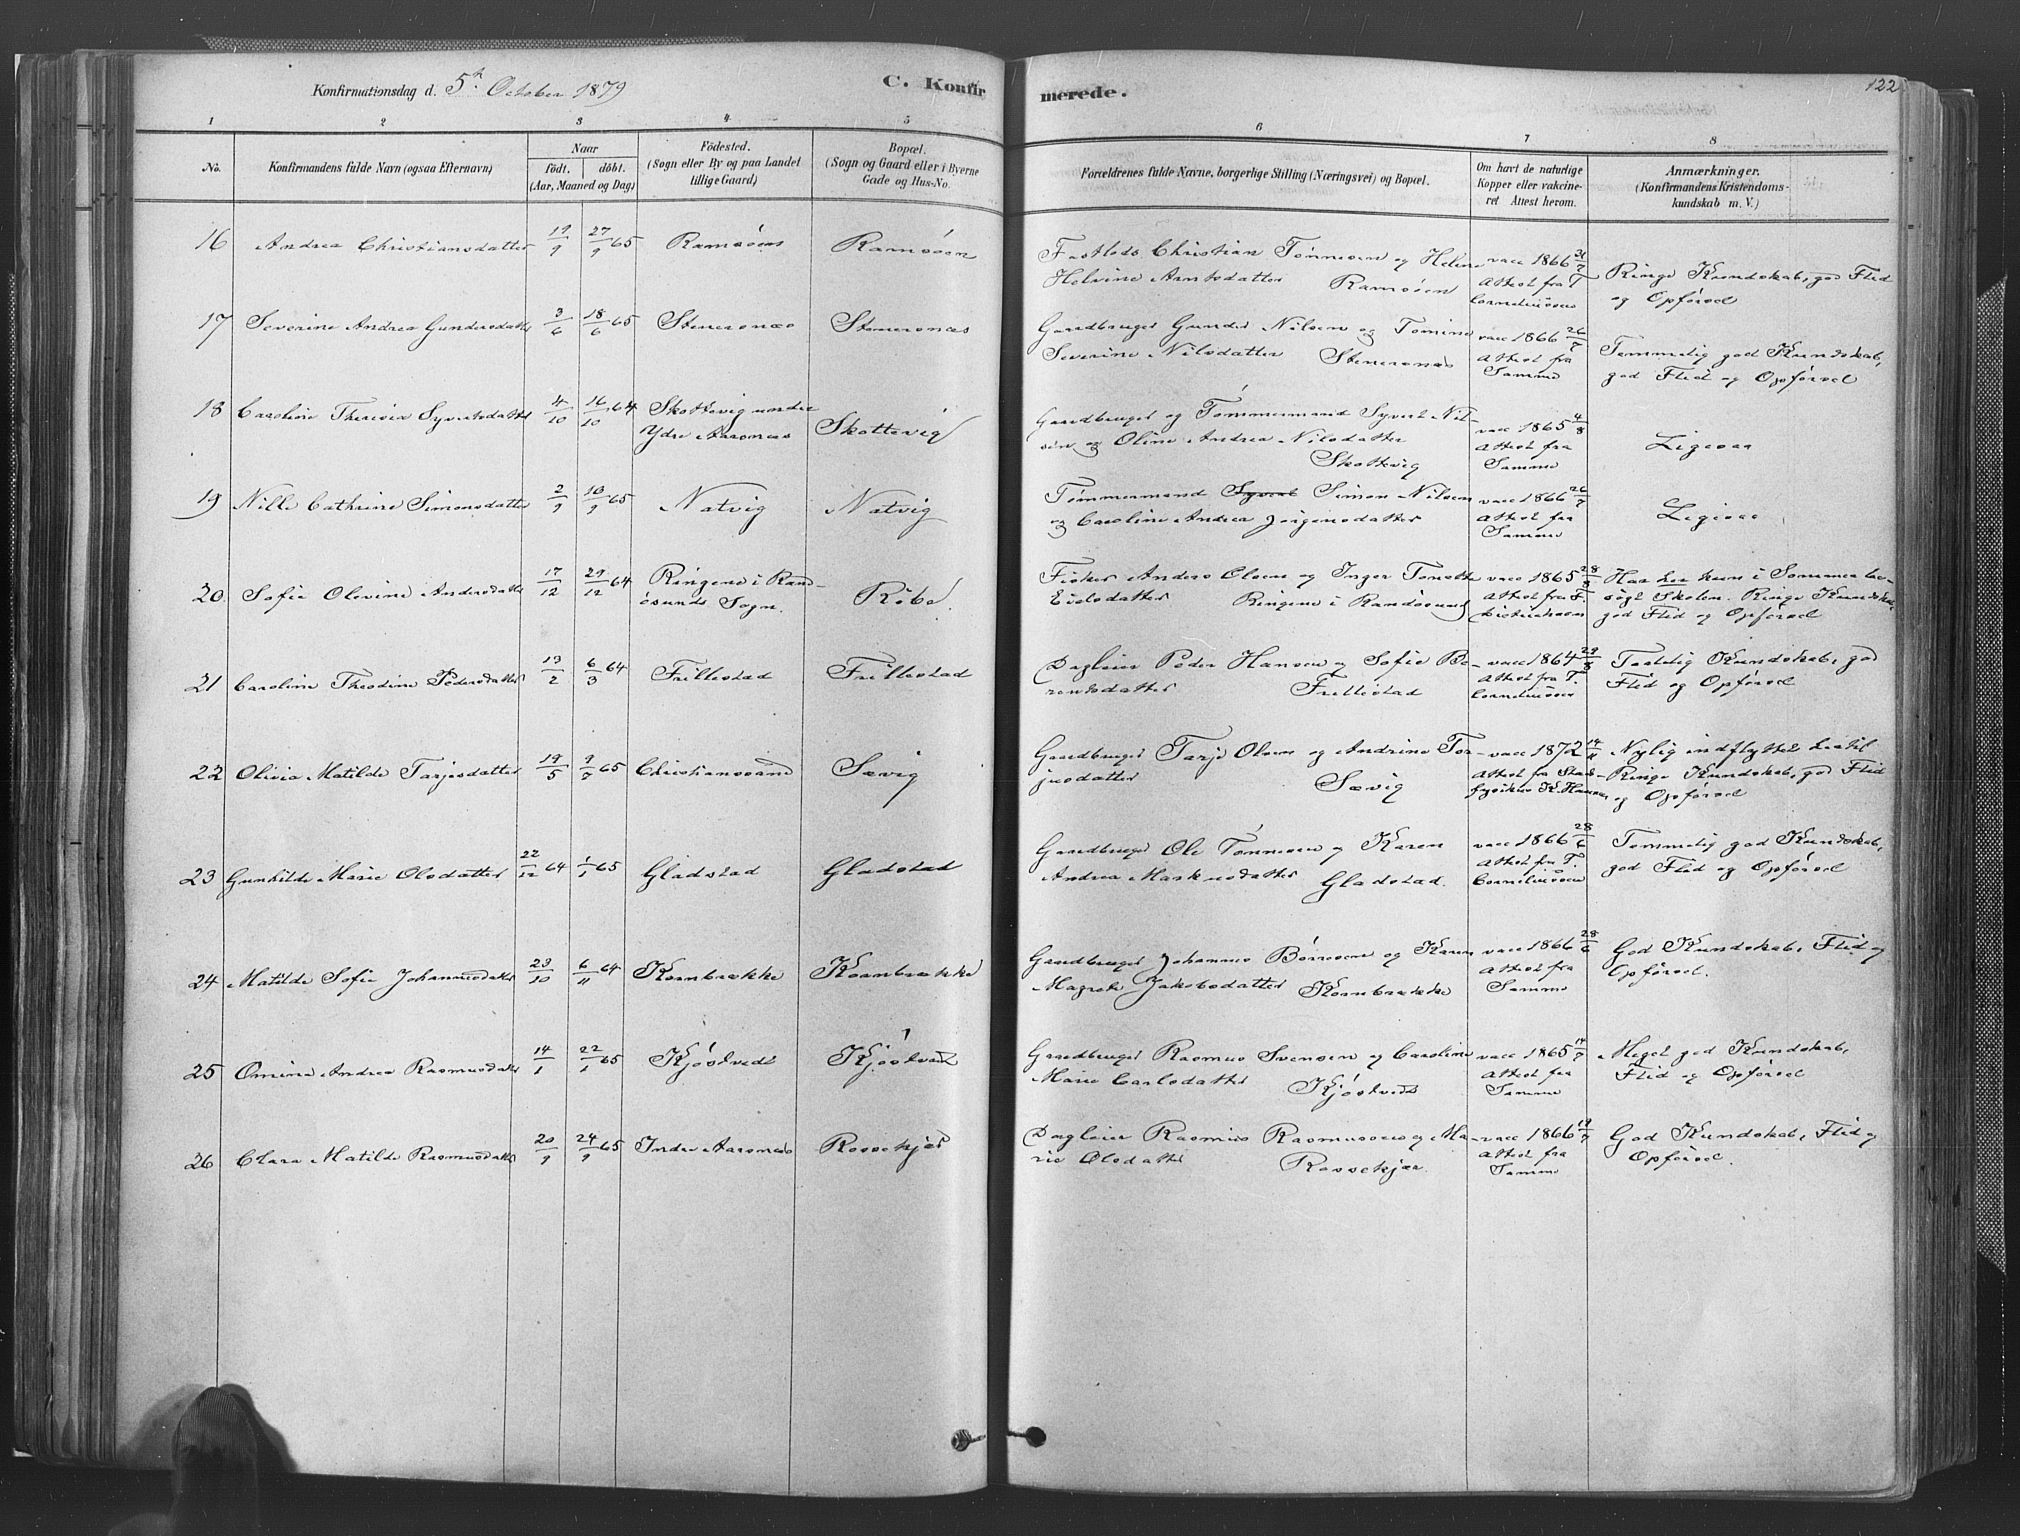 Konfirmationsdag d. 5te October 1879
C. Konfirmerede.
122
1 2 3 4 5 6 7 8
No.
Konfirmandens fulde Navn (ogsaa Efternavn)
Naar
födt. döbt.
(Aar, Maaned og Dag)
Födested.
(Sogn eller By og paa Landet
tillige Gaard)
Bopæl.
(Sogn og Gaard eller i Byerne
Gade og Hus-No.
Forældrenes fulde Navne, borgerlige Stilling (Næringsvei) og Bopæl.
Om havt de naturlige
Kopper eller vakcine-
ret Attest herom.
Anmærkninger.
(Konfirmandens Kristendoms-
kundskab m. V.)
16 Andrea Christiansdatter 19/9 27/9 65 Ramsöen Ramsöen
Christian Tønnesen og Helene vacc 1866 31/7
Helvine Arntsdatter Ramsöen Attest fra T. Corneliussen
Ringe Kundskab, god Flid
og Opførsel
17 Severine Andrea Gundersdatter 3/6 18/6 65 Stenersnæs Stenersnæs
Gaardbruger Gunder Nilsen og Tomine vacc 1866 26/7
Severine Nilsdatter Stenersnæs Attest fra Samme
Temmelig god Kundskab,
god Flid og Opførsel
18 Caroline Theresia Syvertsdatter 4/10 16/10 64 Skottevig under
Ydre Aarsnæs Skottevig
Gaardbruger og Tømmermand Syvert Nil- vacc 1865 4/8
sen og Oline Andrea Nilsdatter Attest fra
Skottevig Samme
Ligesaa
19 Nille Cathrine Simonsdatter 2/9 10/9 65 Natvig Natvig
Tømmermand Syvert Simon Nilsen vacc 1866 26/7
og Caroline Andrea Jörgensdatter Attest fra
Samme
Ligesaa
20 Sofie Olevine Andersdatter 17/12 29/12 64 Ringene i Rand-
ösunds Sogn. Röbe.
Fisker Anders Olsen og Inger Tonette vacc 1865 28/8
Eielsdatter Ringene i Randösund Attest fra F.
Har her kun i Sommer be-
søgt Skolen. Ringe Kundskab,
god Flid og Opførsel
21 Caroline Theodine Pedersdatter 13/2 6/3 64 Frillestad Frillestad
Dagleier Peder Hansen og Sofie Be- vacc 1864 29/8
rentsdatter Frillestad Attest fra T.
Corneliussen
Taalelig Kundskab, god
Flid og Opførsel
22 Olivia Matilde Tarjesdatter 19/5 9/7 65 Christianssand Sævig
Gaardbruger Tarje Olsen og Andrine Ter- vacc 1872 14/11
jusdatter Sævig Attest fra Stads-
fysikus K. Hansen
Nylig indflyttet hertil
Ringe Kundskab, god Flid
og Opførsel
23 Gunhilde Marie Olsdatter 22/12 64 1/1 65 Gladstad Gladstad
Gaardbruger Ole Tønnesen og Karen vacc 1866 28/6
Andrea Markusdatter Gladstad. Attest fra T.
Corneliussen
Temmelig god Kundskab,
god Flid og Opførsel
24 Matilde Sofie Johannesdatter 23/10 6/11 64 Kornbrække Kornbrække
Gaardbruger Johannes Børresen og Karen vacc 1866 28/6
Magrete Jakobsdatter Kornbrække Attest fra
Samme
God Kundskab, Flid og
Opførsel.
25 Omine Andrea Rasmusdatter 14/1 22/1 65 Kjöstvedt Kjöstvedt
Gaardbruger Rasmus Svensen og Caroline vacc 1865 14/7
Marie Carlsdatter Kjöstvedt Attest fra
Samme
Meget god Kundskab,
Flid og Opførsel
26 Clara Matilde Rasmusdatter 20/9 24/9 65 Indre Aarsnæs Rossekjær
Dagleier Rasmus Rasmussen og Ma- vacc 1866 19/7
rie Olsdatter Rossekjær Attest fra
Samme
God Kundskab, Flid og
Opførsel.